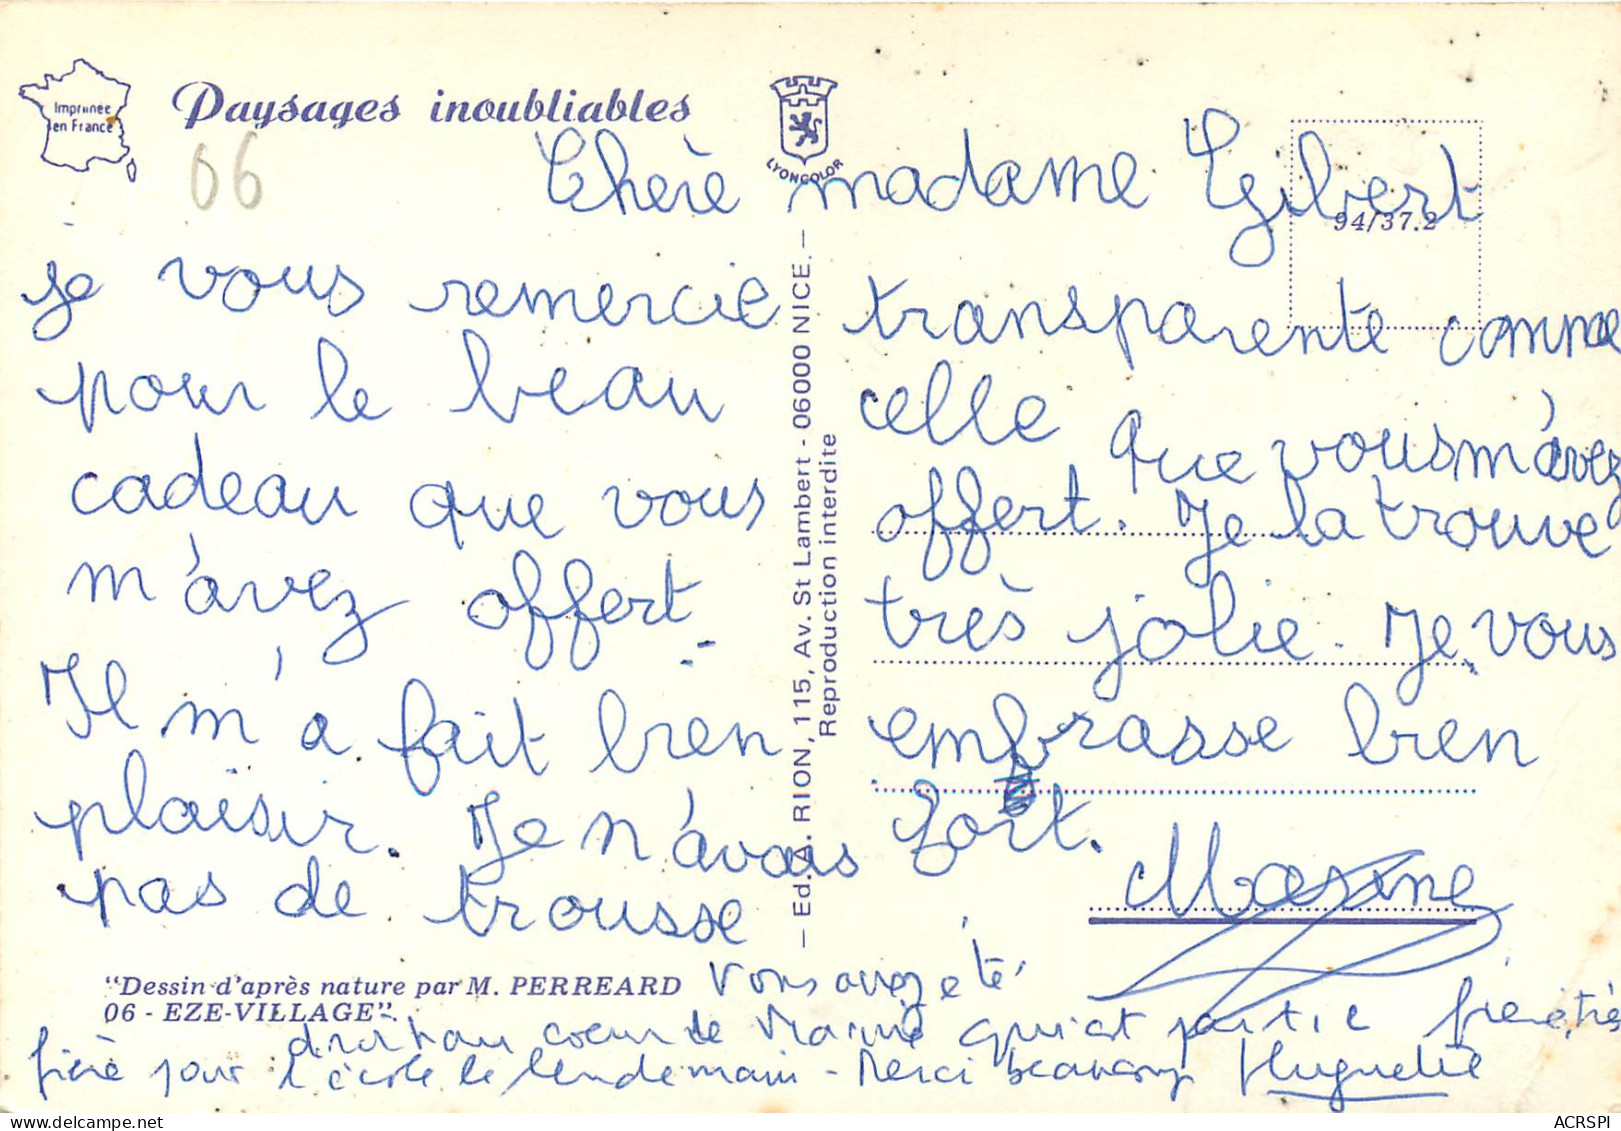 Imprimée
en France
Paysages inoubliables
LYONCOLOR
06
94/37.2
Chère madame Gilbert
je vous remercie
pour le beau
cadeau que vous
m'avez offert
Il m'a fait bien
plaisir. Je n'avais
pas de trousse
transparente comme
celle que vous m'avez
offert. Je la trouve
très jolie. Je vous
embrasse bien
fort.
Maxine
- Ed. A. RION, 115, Av. St Lambert - 06000 NICE. -
Reproduction interdite
"Dessin d'après nature par M. PERREARD
06 - EZE-VILLAGE".
Vous avez été
droit au coeur de qui est partie fière, très
fière pour l'école le lendemain - Merci beaucoup Huguette
ACRSPI